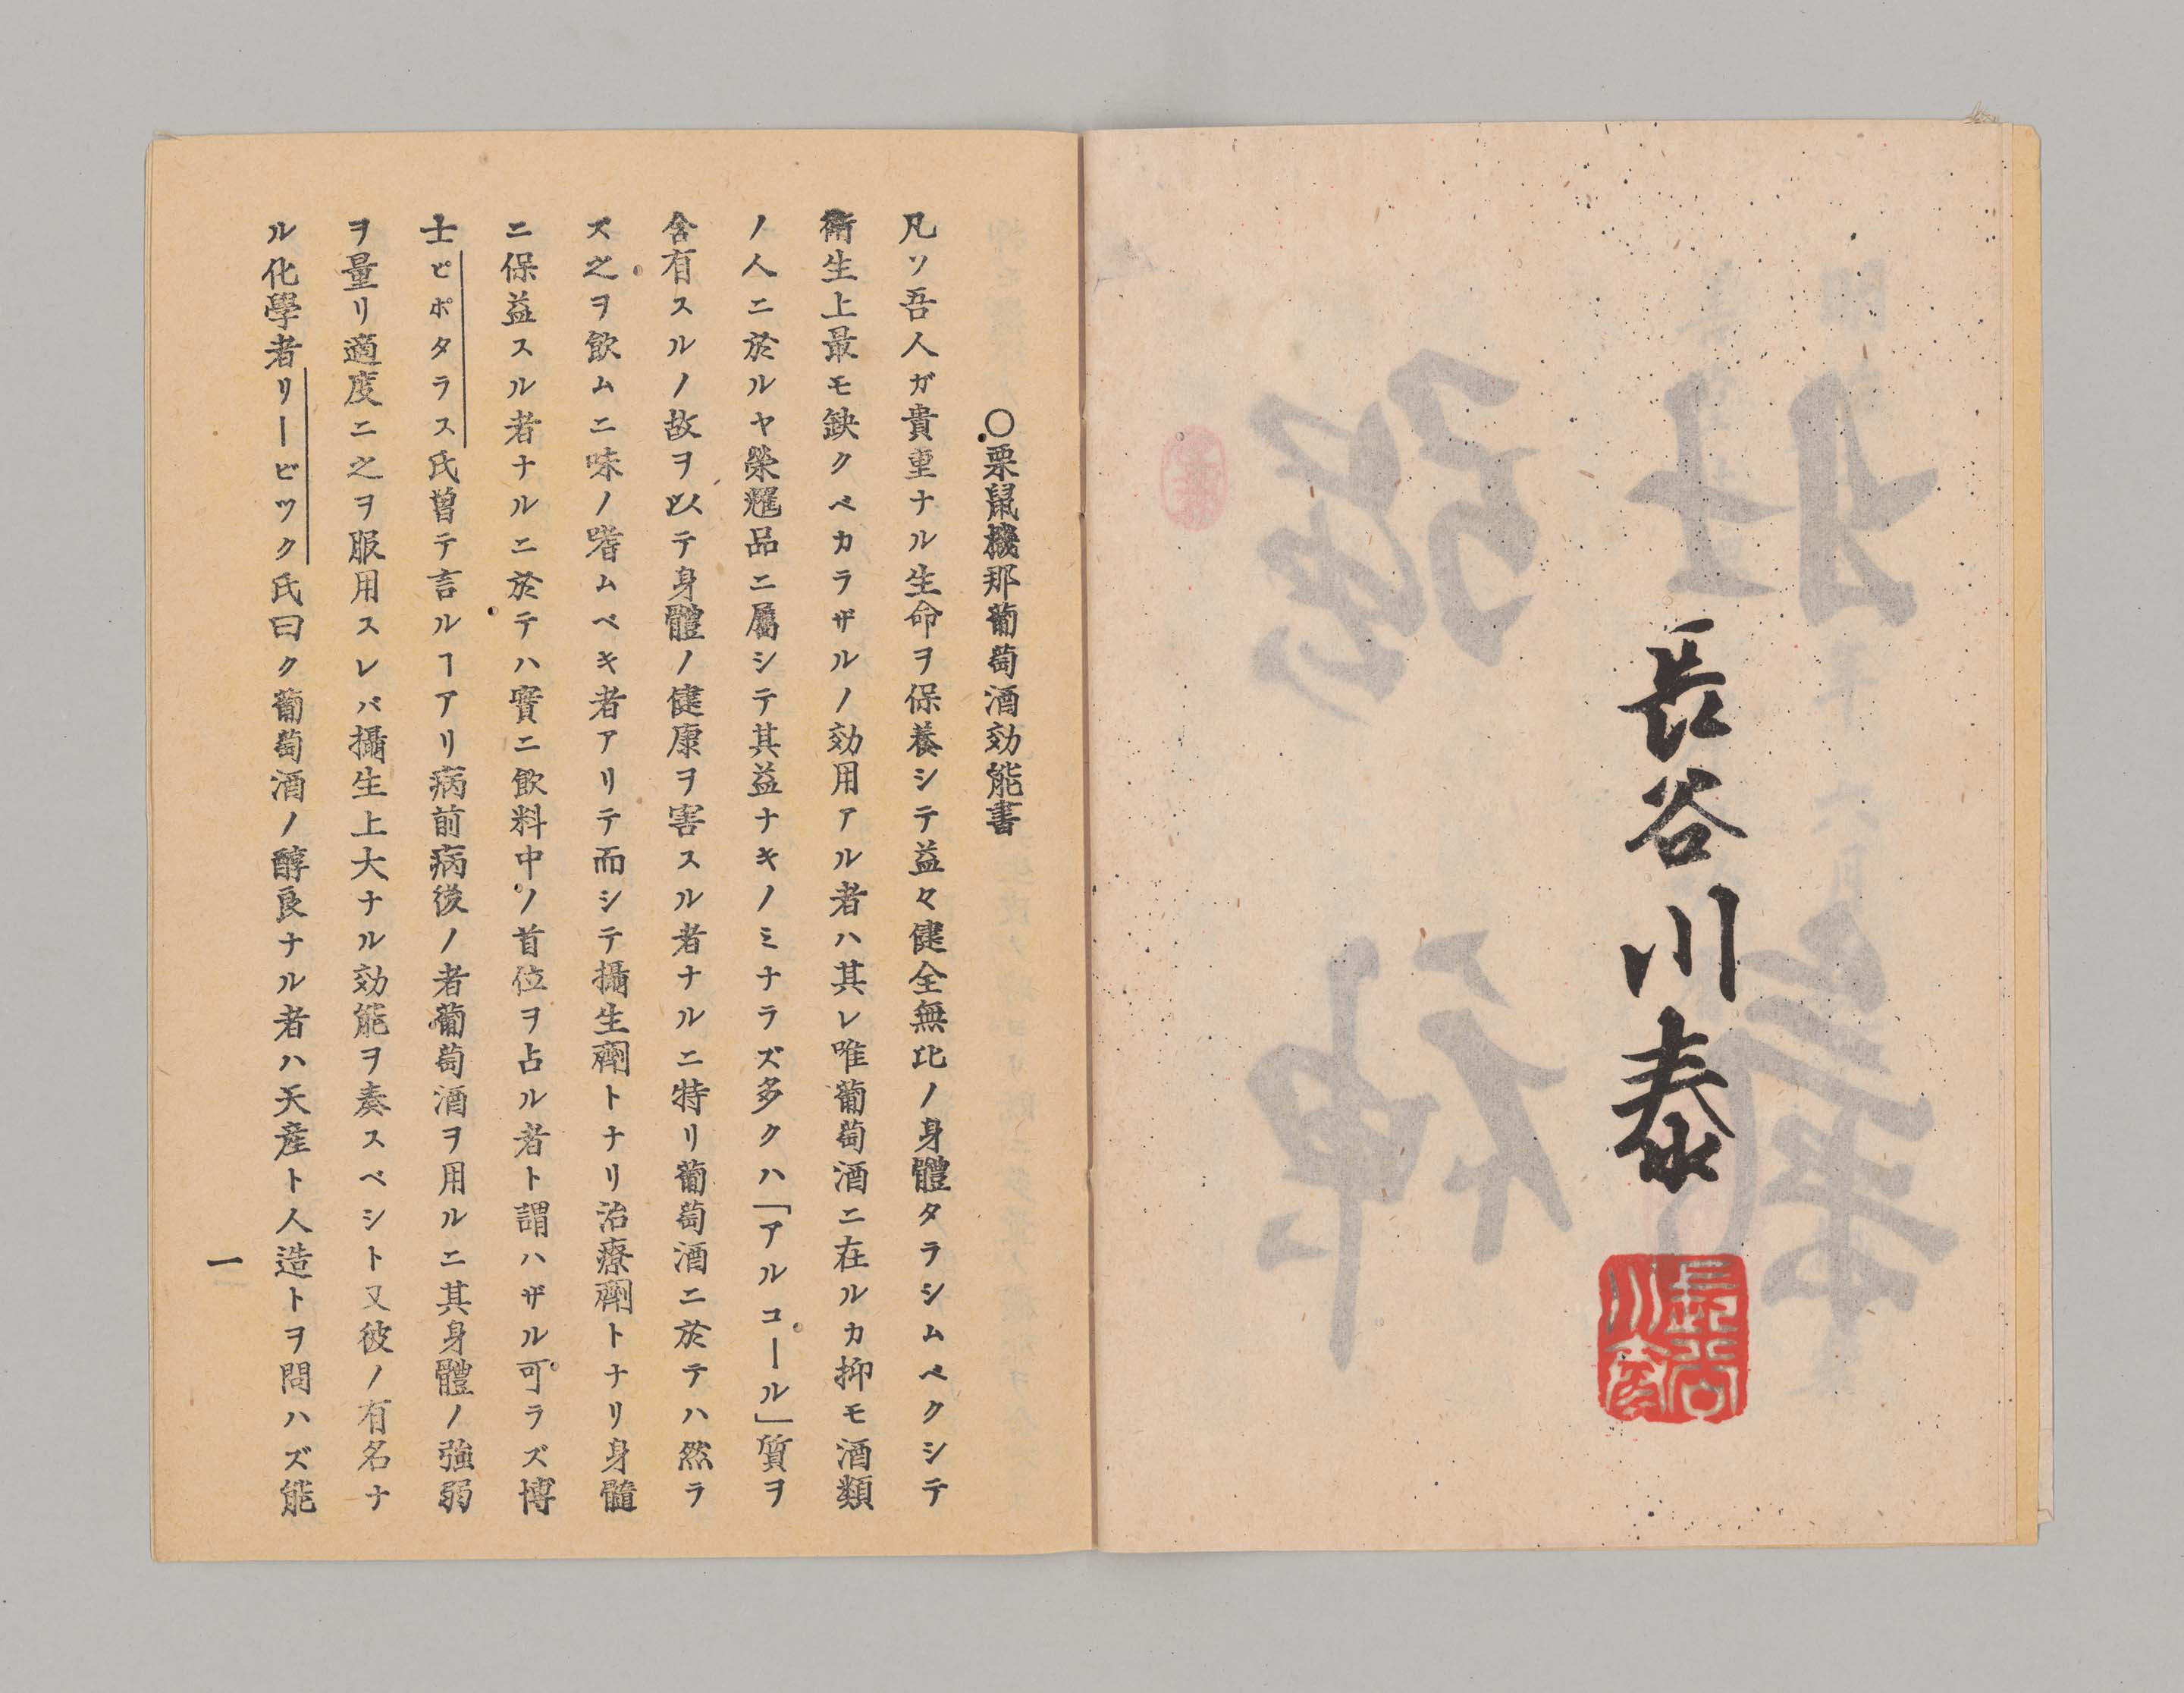 長谷川泰
○栗鼠機那葡萄酒効能書
凡ソ吾人ガ貴重ナル生命ヲ保養シテ益々健全無比ノ身體タラシムベクシテ
衛生上最モ缺クベカラザルノ効用アル者ハ其レ唯葡萄酒ニ在ルカ抑モ酒類
ノ人ニ於ルヤ榮耀品ニ屬シテ其益ナキノミナラズ多クハ「アルコール」質ヲ
含有スルノ故ヲ以テ身體ノ健康ヲ害スル者ナルニ特リ葡萄酒ニ於テハ然ラ
ズ之ヲ飲ムニ味ノ嗜ムベキ者アリテ而シテ攝生劑トナリ治療劑トナリ身髓
ニ保益スル者ナルニ於テハ實ニ飲料中ノ首位ヲ占ル者ト謂ハザル可ラズ博
士ピポタラス氏曽テ言ルヿアリ病前病後ノ者葡萄酒ヲ用ルニ其身體ノ強弱
ヲ量リ適度ニ之ヲ服用スレバ攝生上大ナル効能ヲ奏スベシト又彼ノ有名ナ
ル化學者リービック氏曰ク葡萄酒ノ醇良ナル者ハ天産ト人造トヲ問ハズ能
一